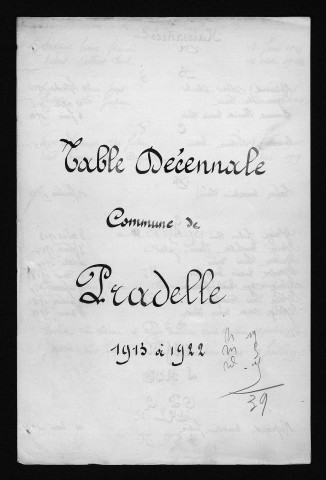 Table Décennale
Commune de
Pradelle
1913 à 1922
39